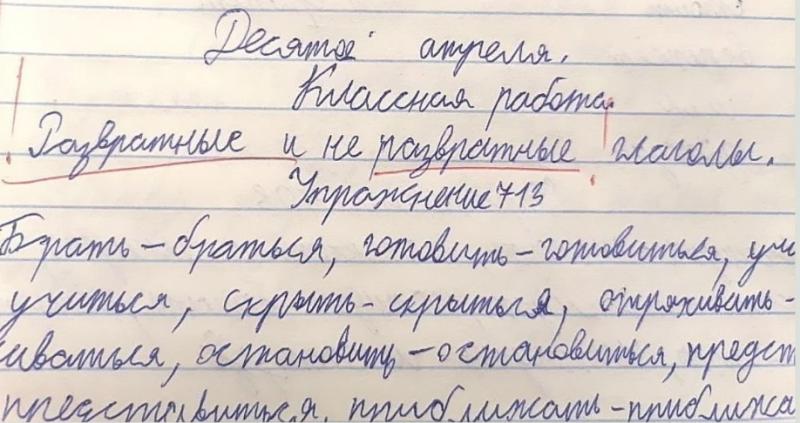 Десятое апреля.
Классная работа.
Развратные и не развратные глаголы.
Упражнение 713
Брать – браться, готовить – готовиться, учи
учиться, скрыть - скрыться, отряхивать -
иваться, остановить – остановиться, предст
представиться, приближать – приближа